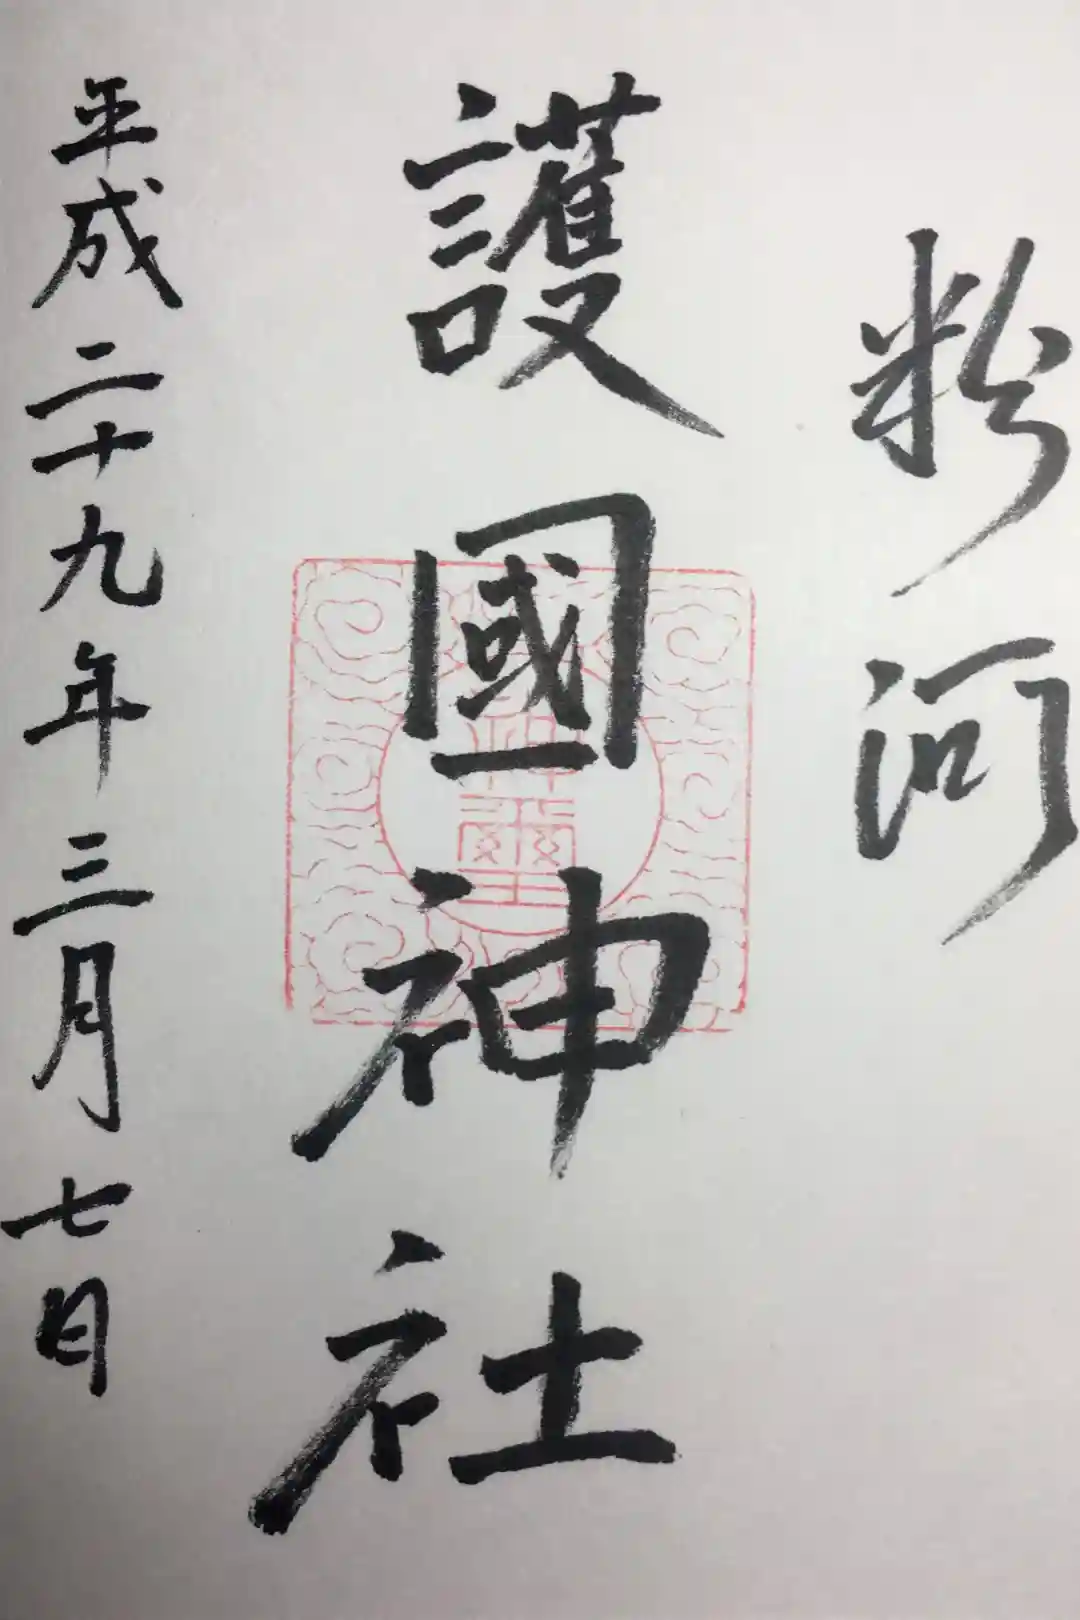 粉河
護國神社
平成二十九年三月七日